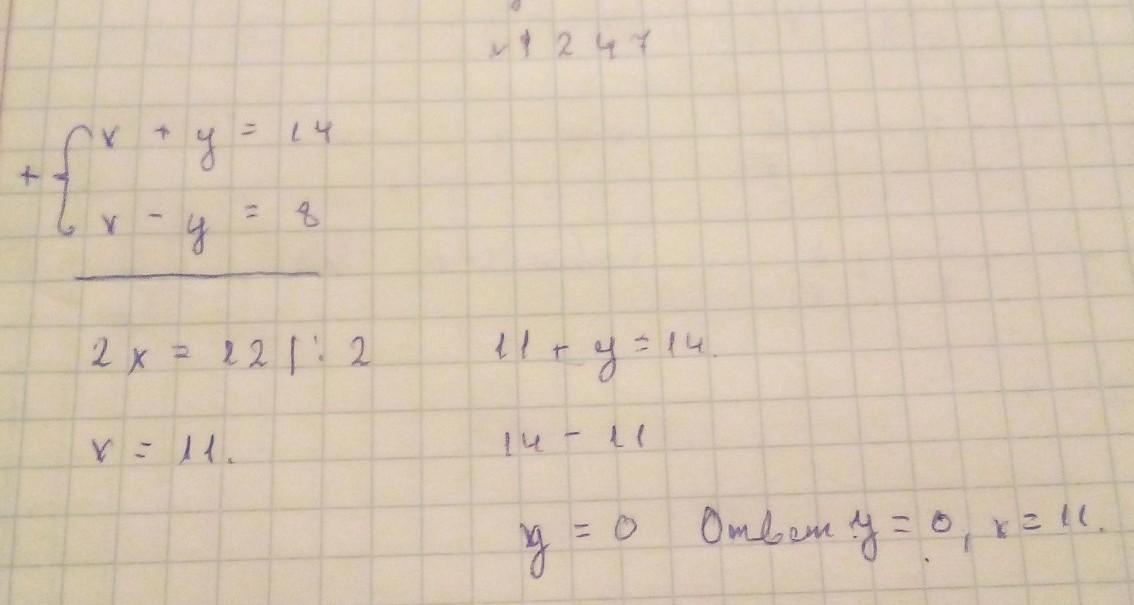 №1247
x + y = 14
+
x - y = 8
2x = 22 | : 2
x = 11.
11 + y = 14.
14 - 11
y = 0 Ответ y = 0, x = 11.